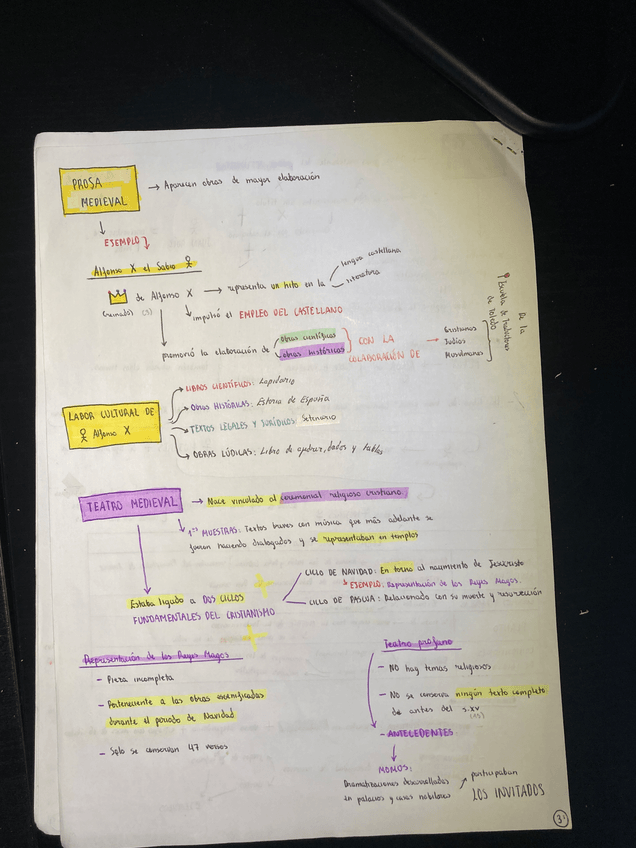 PROSA
MEDIEVAL
→ Aparecen obras de mayor elaboración
EJEMPLO
Alfonso X el Sabio
de Alfonso X → representa un hito en la
lengua castellana
literatura
(reinado)
impulsó el EMPLEO DEL CASTELLANO
promovió la elaboración de
obras científicas
obras históricas
CON LA
COLABORACIÓN DE
→ Cristianos
Judíos
Musulmanes
De la
Escuela de Traductores
de Toledo
LABOR CULTURAL DE
Alfonso X
LIBROS CIENTÍFICOS: Lapidario
OBRAS HISTÓRICAS: Estoria de España
TEXTOS LEGALES Y JURÍDICOS: Setenario
OBRAS LÚDICAS: Libro de ajedrez, dados y tablas
TEATRO MEDIEVAL
→ Nace vinculado al ceremonial religioso cristiano
1ªs MUESTRAS: Textos breves con música que más adelante se
fueron haciendo dialogados y se representaban en templos
Estaba ligado a DOS CICLOS
FUNDAMENTALES DEL CRISTIANISMO
CICLO DE NAVIDAD: En torno al nacimiento de Jesucristo
EJEMPLO: Representación de los Reyes Magos.
CICLO DE PASCUA: Relacionado con su muerte y resurrección
Representación de los Reyes Magos
- Pieza incompleta
- Perteneciente a las obras escenificadas
durante el periodo de Navidad
- Solo se conservan 47 versos
Teatro profano
- NO hay temas religiosos
- NO se conserva ningún texto completo
de antes del s.XV
(15)
- ANTECEDENTES
MOMOS:
Dramatizaciones desarrolladas
en palacios y casas nobiliares
participaban
LOS INVITADOS
3